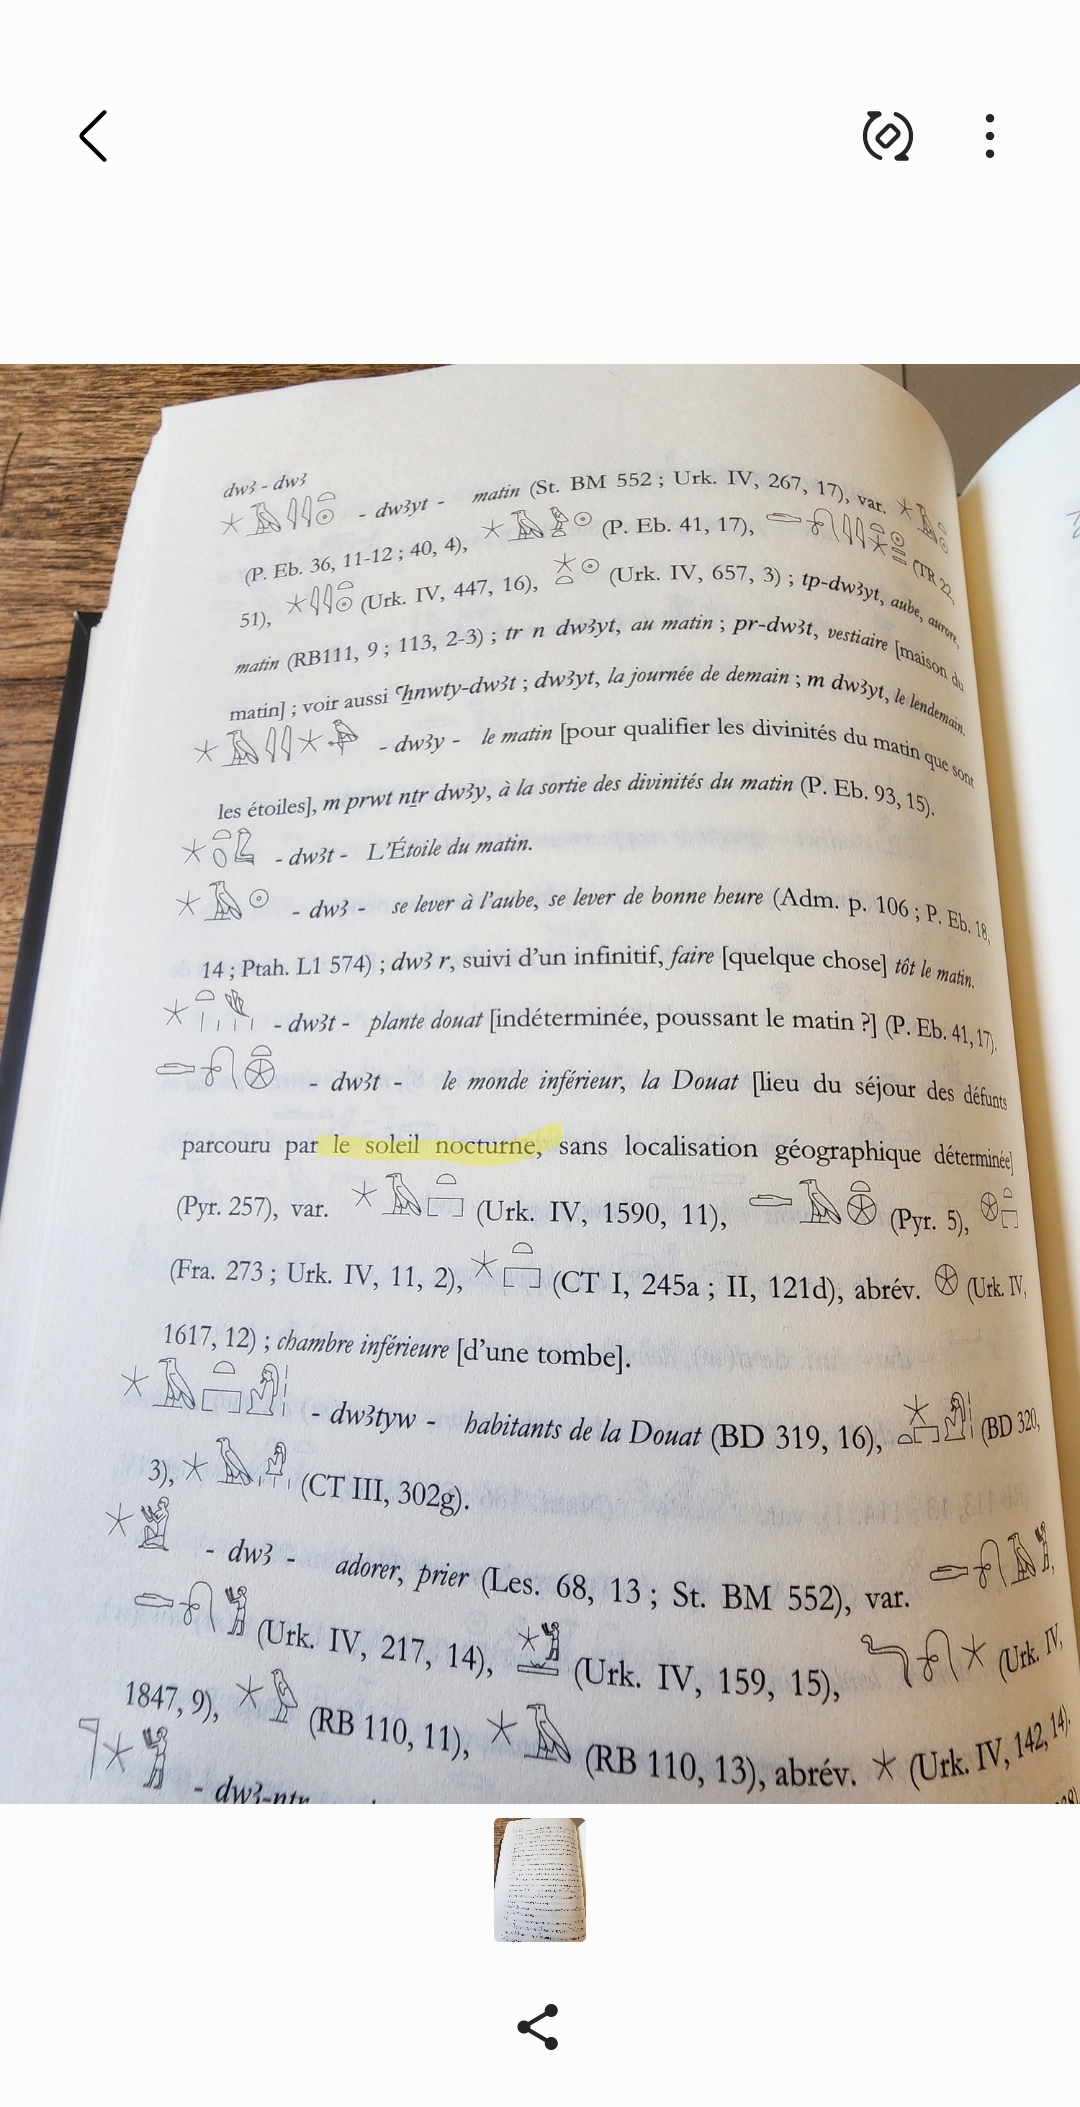 dwꜣ - dwꜣ
- dwꜣyt - matin (St. BM 552 ; Urk. IV, 267, 17), var.
(P. Eb. 36, 11-12 ; 40, 4), (P. Eb. 41, 17), (TR 22,
51), (Urk. IV, 447, 16), (Urk. IV, 657, 3) ; tp-dwꜣyt, aube, aurore,
matin (RB111, 9 ; 113, 2-3) ; tr n dwꜣyt, au matin ; pr-dwꜣt, vestiaire [maison du
matin] ; voir aussi ꜥẖnwty-dwꜣt ; dwꜣyt, la journée de demain ; m dwꜣyt, le lendemain.
- dwꜣy - le matin [pour qualifier les divinités du matin que sont
les étoiles], m prwt nṯr dwꜣy, à la sortie des divinités du matin (P. Eb. 93, 15).
- dwꜣt - L'Étoile du matin.
- dwꜣ - se lever à l'aube, se lever de bonne heure (Adm. p. 106 ; P. Eb. 18,
14 ; Ptah. L1 574) ; dwꜣ r, suivi d'un infinitif, faire [quelque chose] tôt le matin.
- dwꜣt - plante douat [indéterminée, poussant le matin ?] (P. Eb. 41, 17).
- dwꜣt - le monde inférieur, la Douat [lieu du séjour des défunts
parcouru par le soleil nocturne, sans localisation géographique déterminée]
(Pyr. 257), var. (Urk. IV, 1590, 11), (Pyr. 5),
(Fra. 273 ; Urk. IV, 11, 2), (CT I, 245a ; II, 121d), abrév. (Urk. IV,
1617, 12) ; chambre inférieure [d'une tombe].
- dwꜣtyw - habitants de la Douat (BD 319, 16), (BD 320,
3), (CT III, 302g).
- dwꜣ - adorer, prier (Les. 68, 13 ; St. BM 552), var.
(Urk. IV, 217, 14), (Urk. IV, 159, 15), (Urk. IV,
1847, 9), (RB 110, 11), (RB 110, 13), abrév. (Urk. IV, 142, 14).
- dwꜣ-nṯr